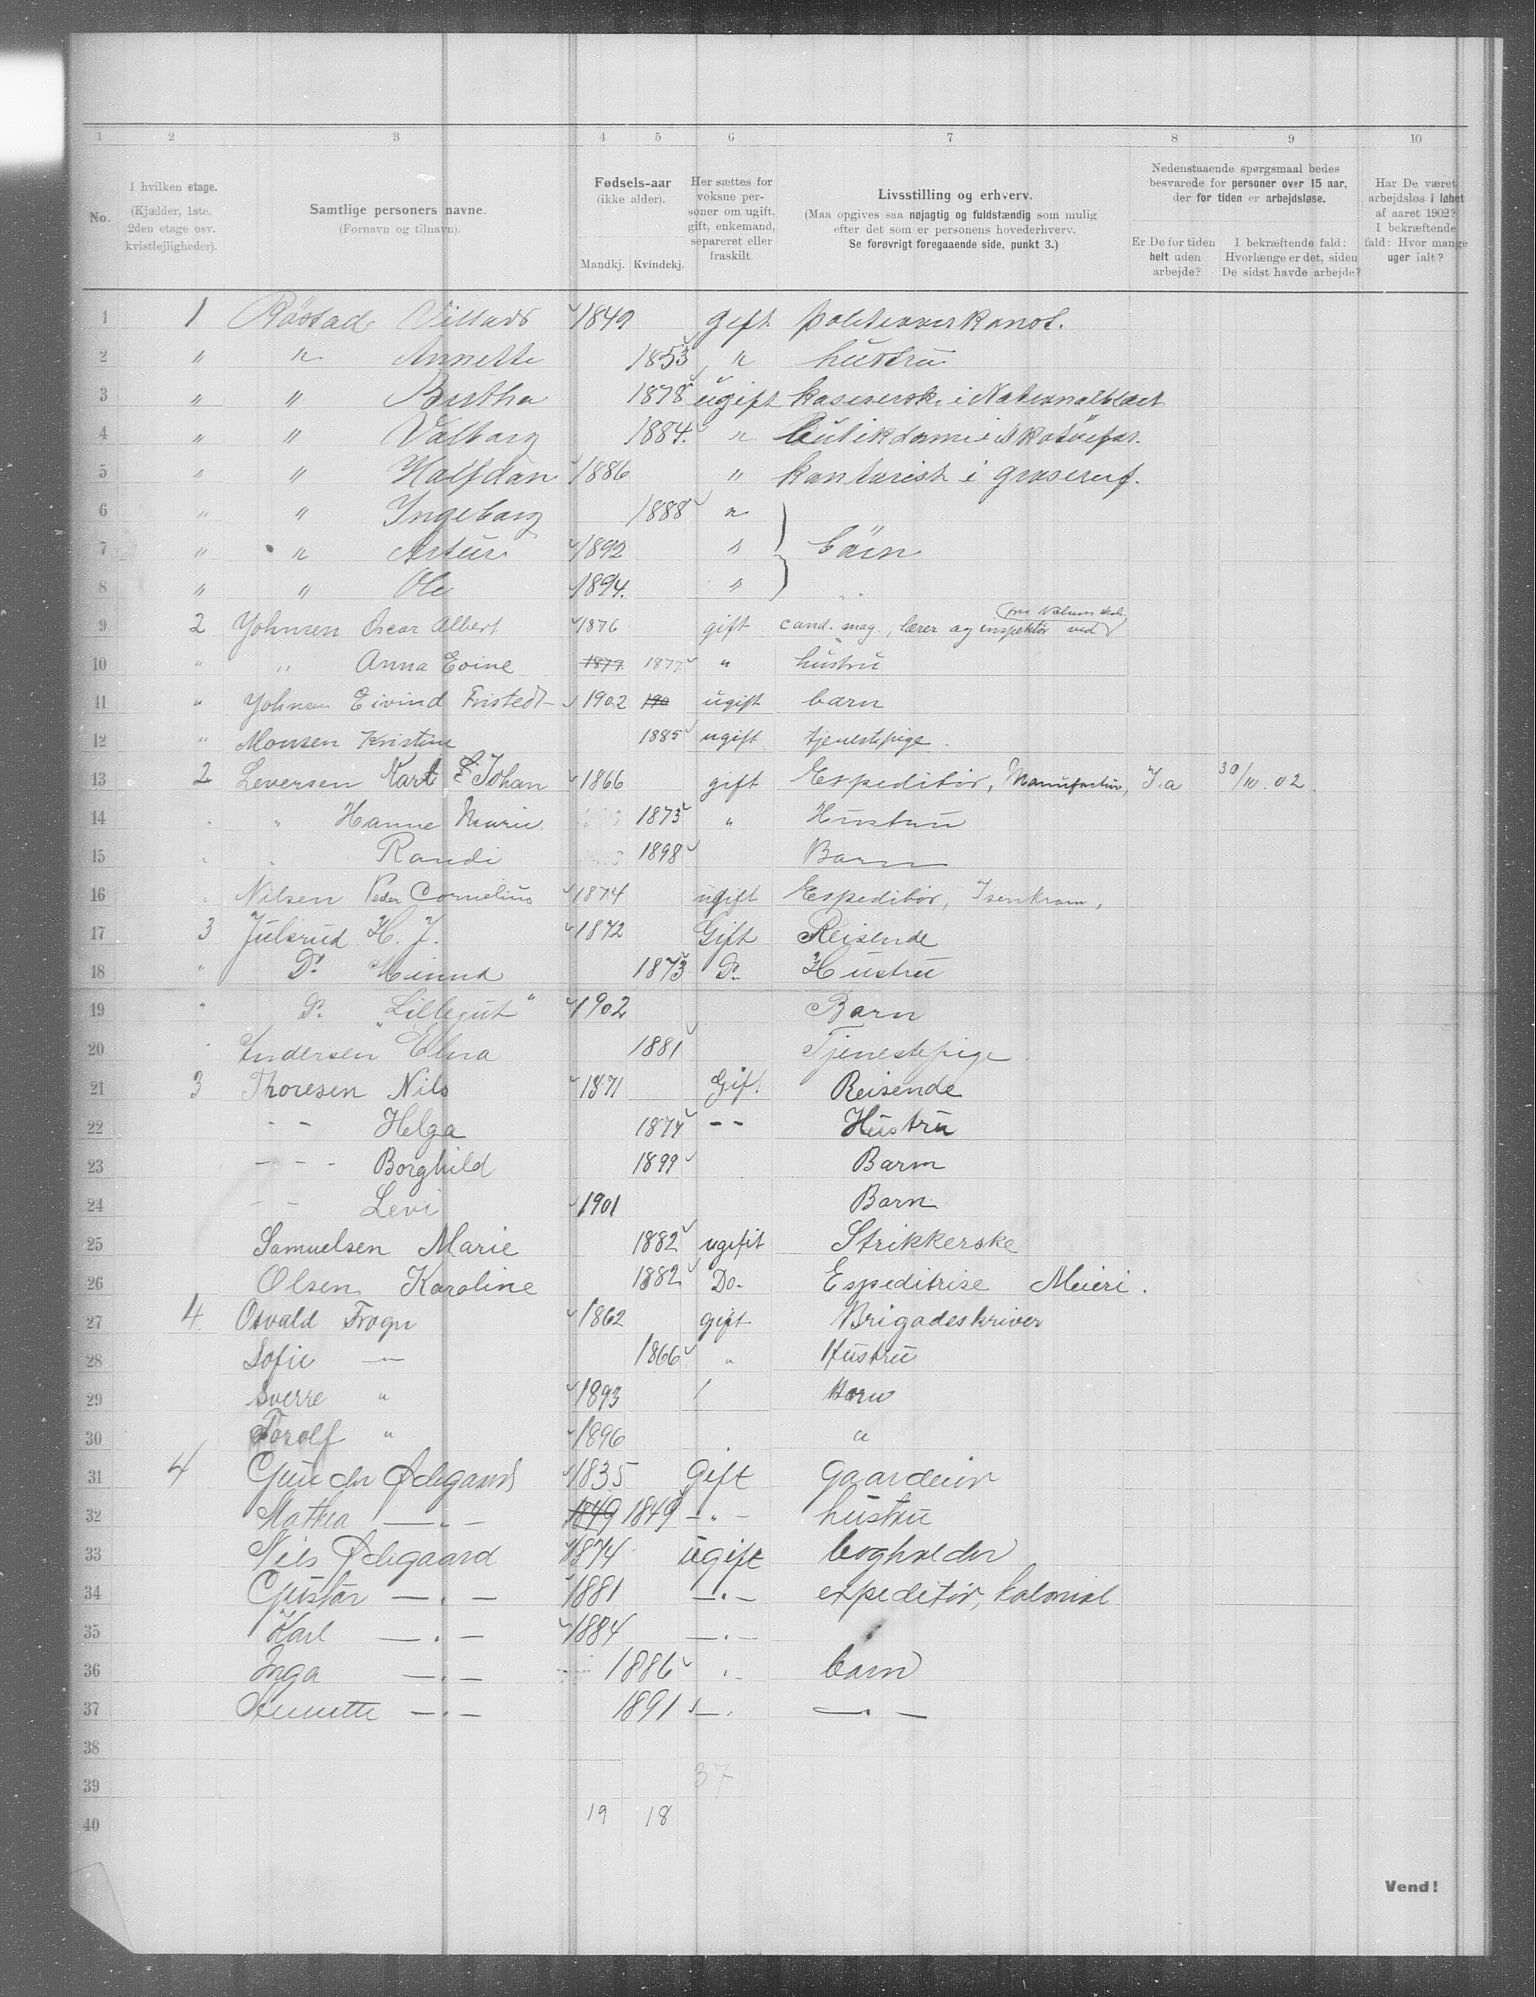 1 2 3 4 5 6 7 8 9 10
No.
I hvilken etage.
(Kjælder, 1ste.
2den etage osv.
kvistlejligheder).
Samtlige personers navne.
(Fornavn og tilnavn).
Fødsels-aar
(ikke alder).
Mandkj. Kvindekj.
Her sættes for
voksne per-
soner om ugift,
gift, enkemand,
separeret eller
fraskilt.
Livsstilling og erhverv.
(Maa opgives saa nøjagtig og fuldstændig som mulig
efter det som er personens hovederhverv.
Se forøvrigt foregaaende side, punkt 3.)
Nedenstaaende spørgsmaal bedes
besvarede for personer over 15 aar,
der for tiden er arbejdsløse.
Er De for tiden
helt uden
arbejde?
I bekræftende fald:
Hvorlænge er det, siden
De sidst havde arbejde?
Har De været
arbejdsløs i løbet
af aaret 1902?
I bekræftende
fald: Hvor mange
uger ialt?
1 1 1849 gift
2 " " Annette 1853 " hustru
3 " " 1878 ugift i Nationaltheatret
4 " " Valborg 1884. "
5 " " Halfdan 1886 " kontorist i
6 " " Ingeborg 1888 "
7 " " Artur 1892 " börn
8 " " Ole 1894. "
9 2 Johnsen Oscar Albert 1876 gift cand. mag., lærer og inspektör ved
10 " " Anna 1877 1877 " hustru
11 " Johnsen Eivind Fristedt 1902 190 ugift barn
12 " Monsen Kristine 1885 ugift tjenestepige.
13 2 Leversen Karl Johan 1866 gift Expeditör, Manufactur, Ja 30/10.02.
14 " " Hanne Marie 1873 " Hustru
15 " " Randi 1898 Barn
16 " Nilsen Peder Cornelius 1874 ugift Expeditör, Isenkram,
17 3 Julsrud H. J. 1872 Gift Reisende
18 " Do 1873 Do Hustru
19 " Do "Lillegut" 1902 Barn
20 " Andersen Elna 1881 Tjenestepige
21 3 Thoresen Nils 1871 Gift. Reisende
22 - - Helga 1874 - - Hustru
23 - - - Borghild 1899 Barn
24 - - Levi 1901 Barn
25 Samuelsen Marie 1882 ugift Strikkerske
26 Olsen Karoline 1882 Do. Expeditrise Meieri.
27 4. Osvald Frogn 1862 gift Brigadeskriver
28 Sofie — 1866 " Hustru
29 Sverre " 1893 Barn
30 Torolf " 1896 "
31 4 Ødegaard 1835 Gift
32 Mathea — " — 1849 1849 - " - hustru
33 Niels Ødegaard 1874 ugift bogholder
34 Gustav — . — 1881 — . — expeditör, kolonial
35 Karl — . — 1884 — . —
36 Inga — . — 1886 " barn
37 Annette — . — 1891 — . — . —
38
39 37
40 19 18
Vend!